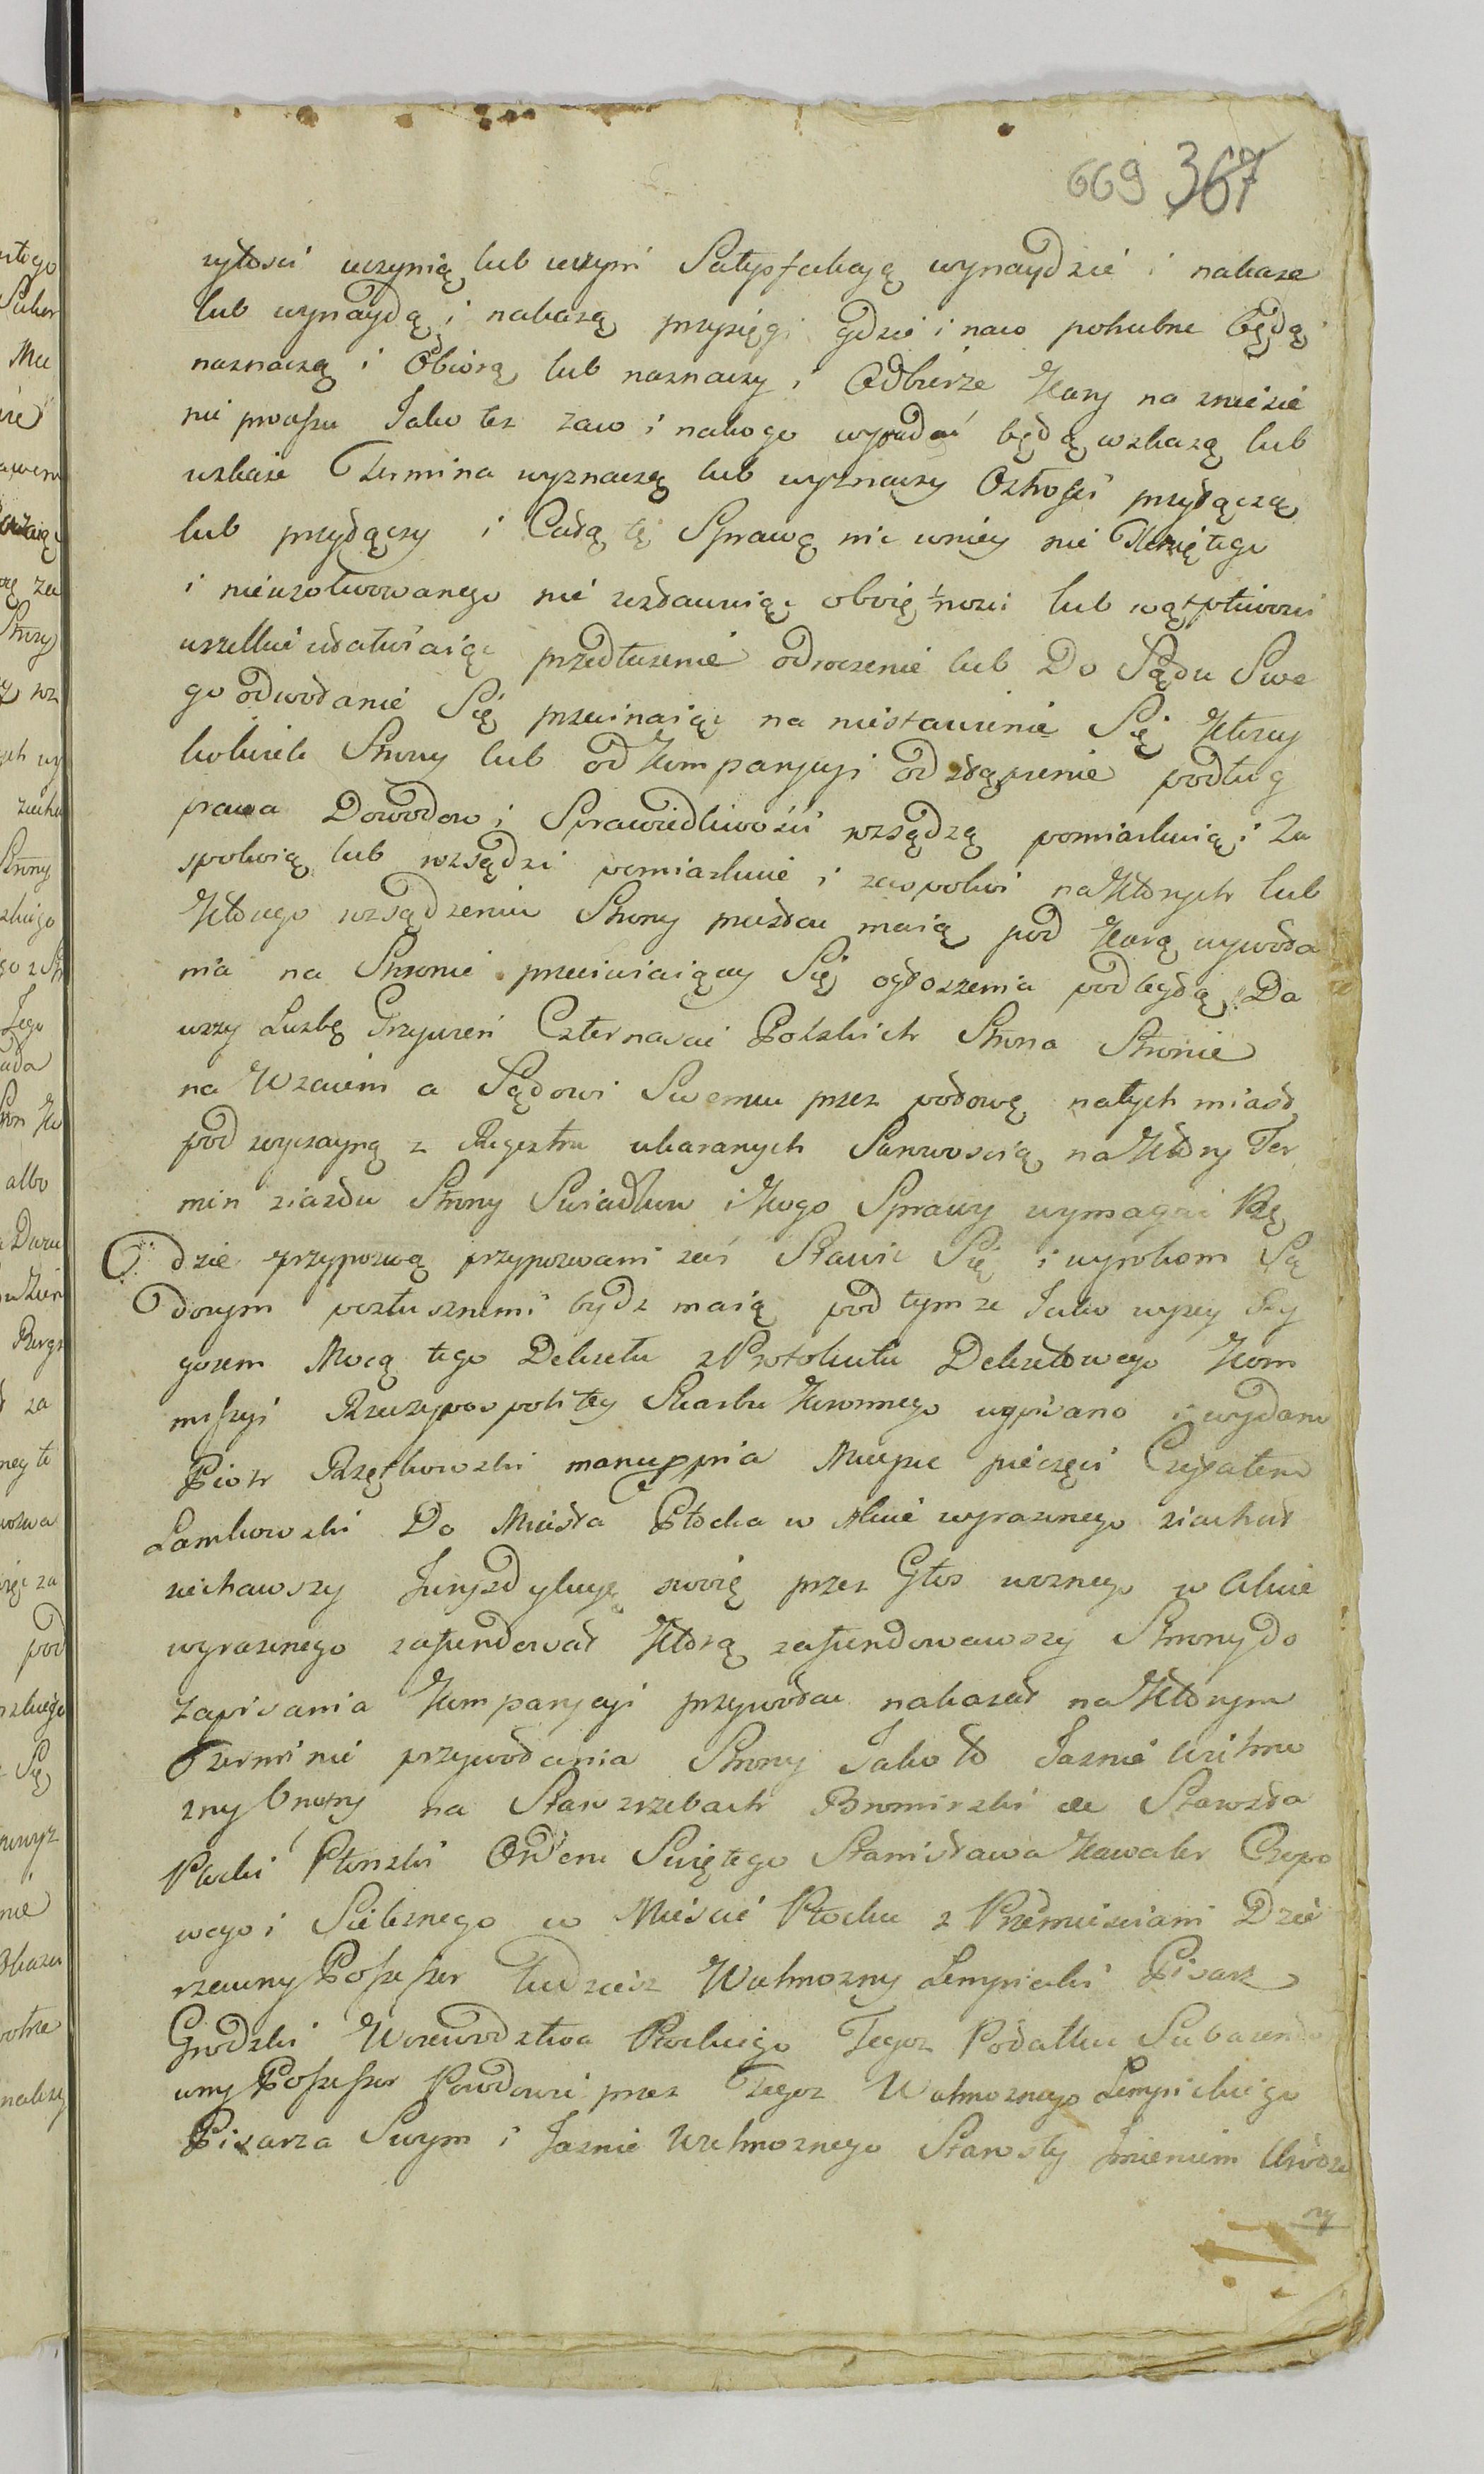 669 367
zytosci uczynią lub uczyni Satysfakcyą wynaydzie i nakaze
lub wynaydą i nakazą przysięgi gdzie i naco pokubne będą
naznaczą i Obiorą lub naznaczy i Odbierze Kary na zniezie
nie processu Jako tez zaco i nakogo wypadać będą wskazą lub
wskaze Termina wyznaczą lub wyznaczy Osłrosci przyłączą
lub przyłączy i Całą tę Sprawę nic wniey nie Tkniętego
i nieuzotwowanego nie zostawuiąc obojętnosci lub wątpliwosci
wszelkie ułatwiaiąc przedłuzenie odroczenie lub Do Sądu Swe
go odwołanie Się przecinaiąc na niestawienie Się Ktorey
kolwiek Strony lub od Komparycyi odstąpienie podług
prawa Dowodow i Sprawiedliwości rozsądzą pomiarkuią i Za
spokoią lub rozsądzi pomiarkuie i zaspokoi na Ktorych lub
Ktorego rozsądzeniu Strony przestac maią pod Karą wywoła
nia na Stronie przeciwiaiący Się ogłoszenia podległą Da
wszy Liczbę Grzywien Czternascie Polskich Strona Stronie
na Wzaiem a Sądowi Swemu przez połowę natychmiast
pod zwyczayną z Regestru ukaranych Surowoscią na Ktory Ter
min ziazdu Strony Swiadkow i Kogo Sprawy wymagać Bę
dzie przypozwą przypozwani zaś Stawic Się i wyrokom Są
dowym posłusznemi bydz maią pod tymze Jako wyzey Ry
gorem Mocą tego Dekretu z Protokułu Dekretowego Kom
missyi Rzeczypospolitey Skarbu Koronnego wypisano i wydano
Piotr Rzętkowski manuppria Mieysce pieczęci Czytałem
Lamkowski Do Miasta Płocka w Akcie wyrazonego ziachał
ziechawszy Juryzdykcyę swoię przez Głos woznego w Akcie
wyrazonego zafundował Ktorą zafundowawszy Strony do
zapisania Komparycyi przywołac nakazał na Ktorym
Terminie przywołania Strony Jako to Jasnie Wielmo
zny Onofry na Starozrzebach Bromirski de Starosta
Płocki Płonski Orderu Swiętego Stanisława Kawaler Czopo
wego i Szelęznego w Miescie Płocku z Przedmiesciami Dzie
rzawny Possessor tudziesz Wielmozny Lempicki Pisarz
Grodzki Wojewodztwa Płockiego Tegoz Podatku Subarendo
wny Possessor Powodowie przez Tegoz Wielmoznego Lempickiego
Pisarza Swym i Jasnie Wielmoznego Starosty Jmieniem Urodzo
ny